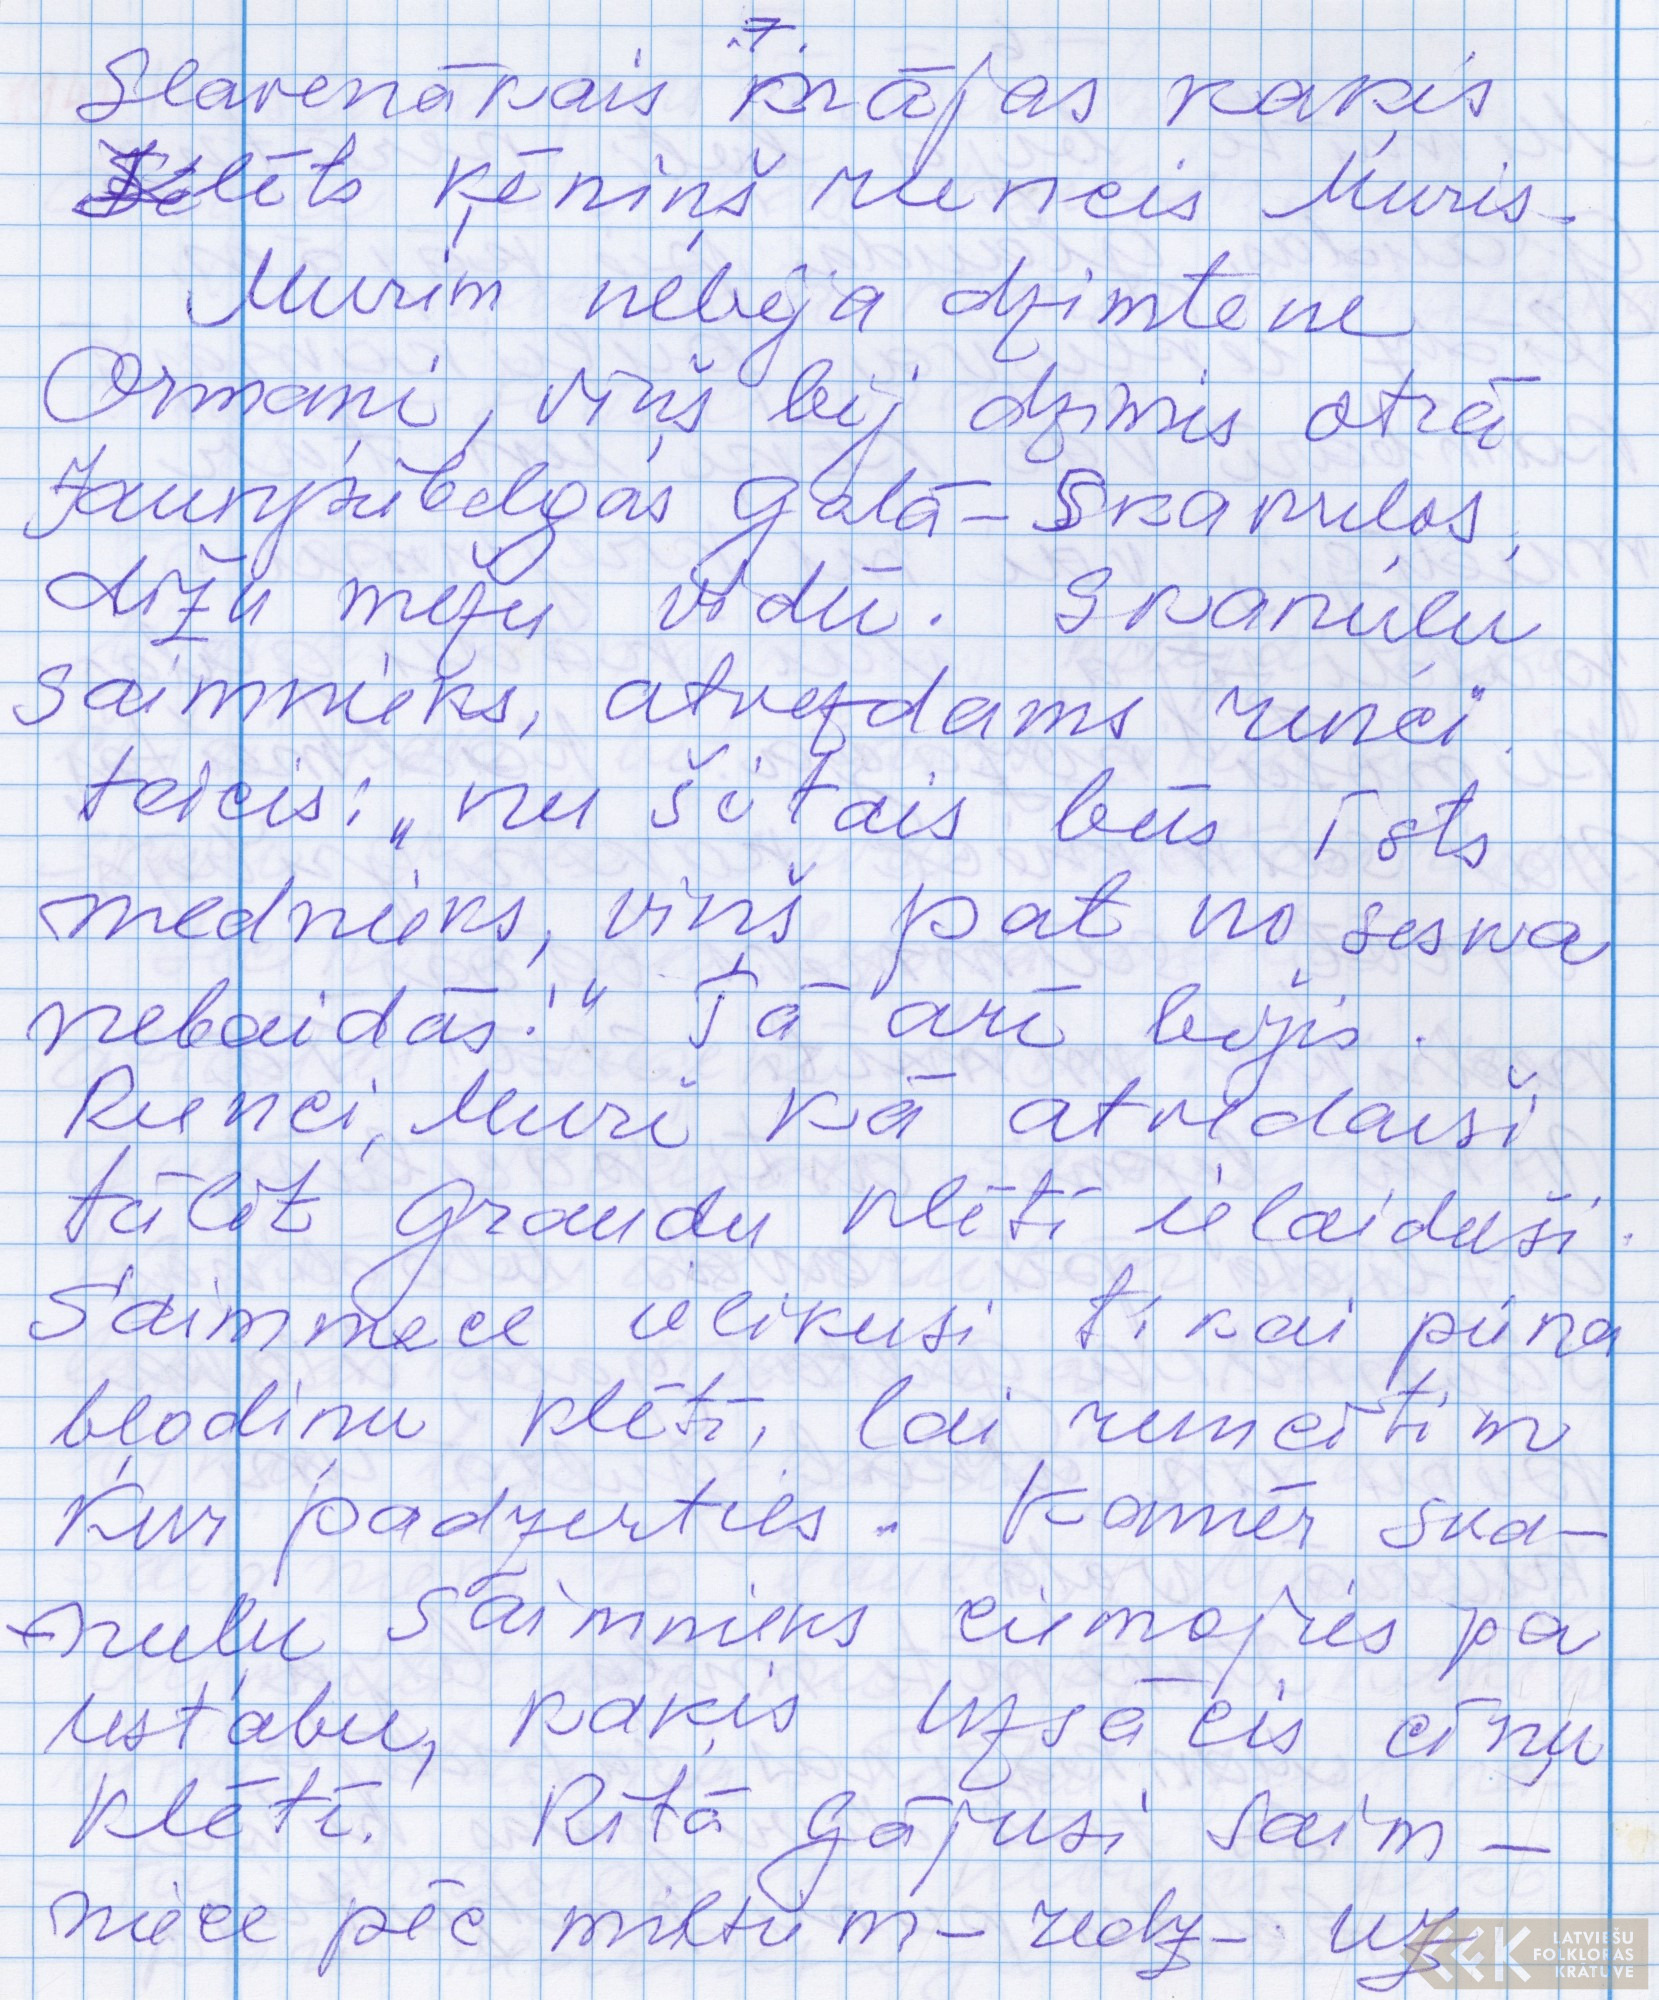 7.
Slavenākais krājas kaķis
lēts ķēniņš runcis Muris.
Murim nebija dzimtene
Ormaņi, viņš bij dzimis otrā
Jaunpiebalgas galā - Skanulos,
dižu mežu vidū. Skanulu
Saimnieks, atvezdams runci
teicis: „nu šitais būs īsts
mednieks, viņš pat no seska
nebaidās!" Tā arī bijis.
Runci, Muri kā atveduši
tūlīt graudu klētī ielaiduši.
Saimniece ielikusi tikai piena
bļodiņu klētī, lai runcītim
kur padzerties. Kamēr Ska-
nulu Saimnieks ciemojies pa
ustabu, kaķis uzsācis cīņu
klētī. Rītā gājusi saim-
niece pēc miltiem - redz - uz
LATVIEŠU
FOLKLORAS
KRĀTUVE